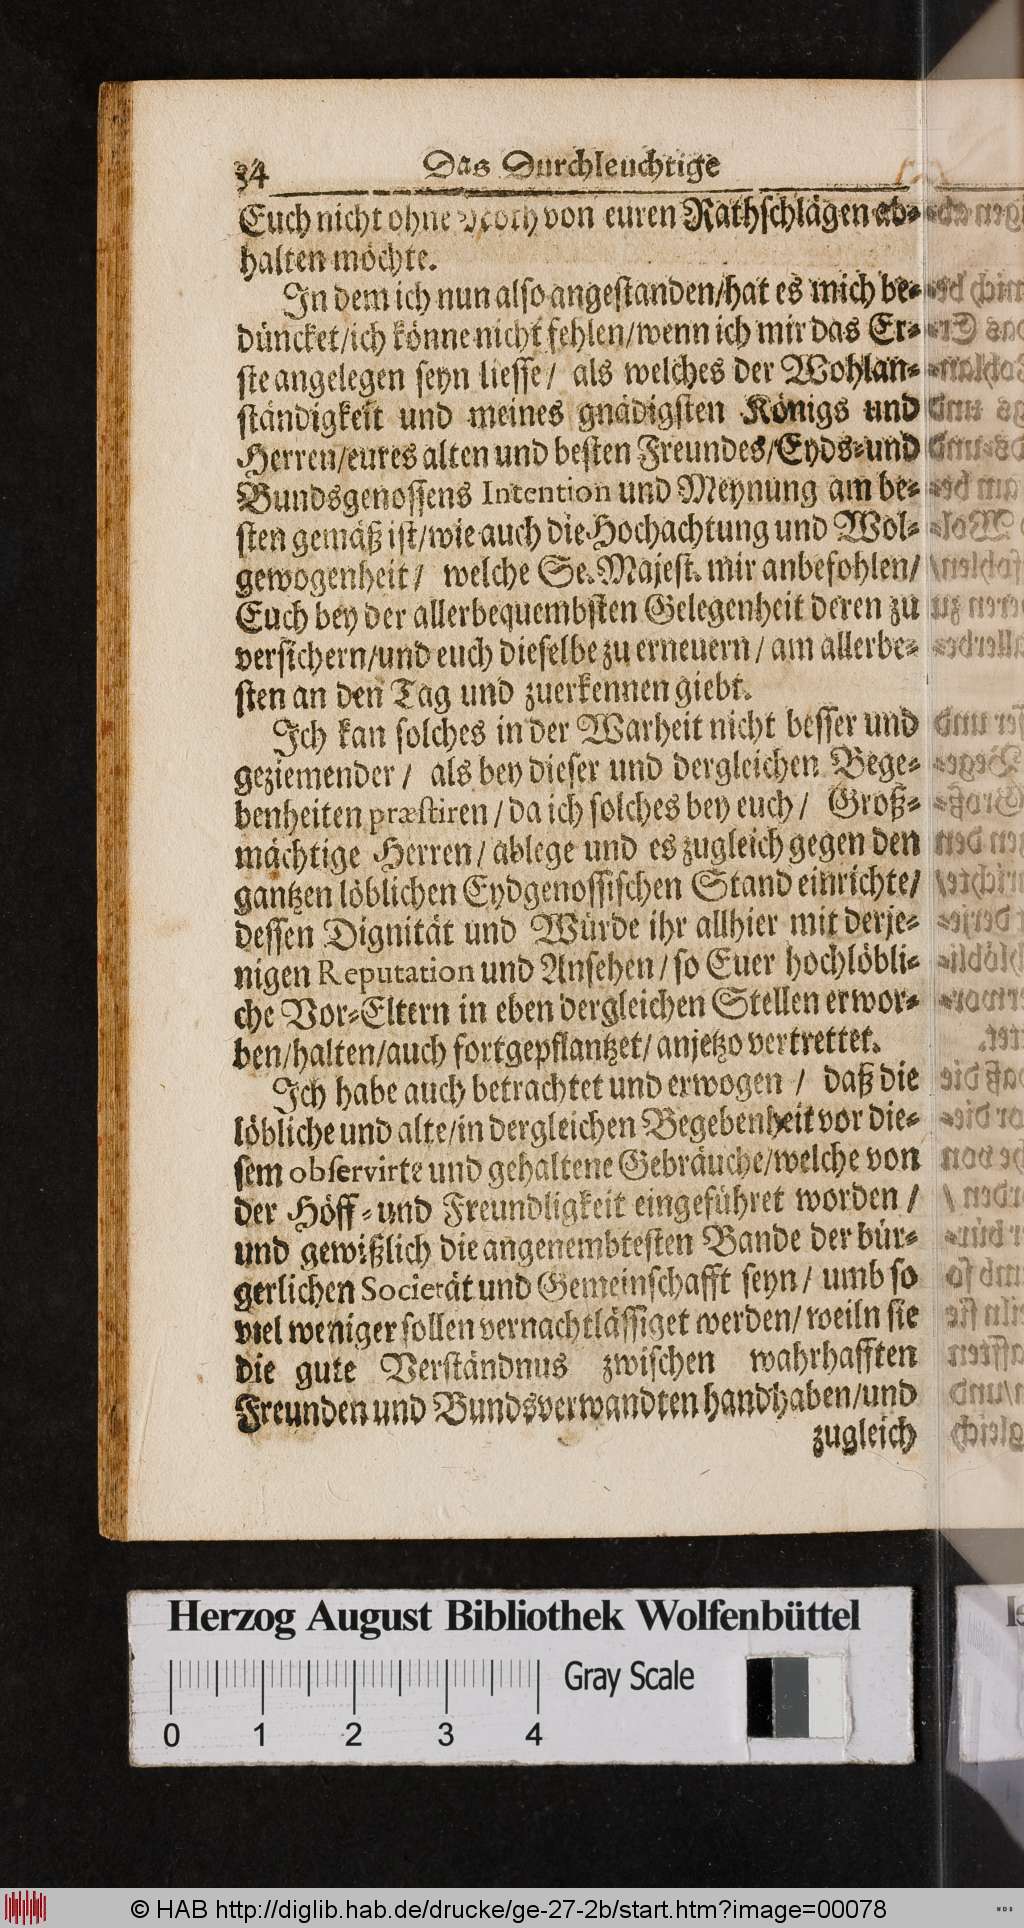 34 Das Durchleuchtige
Euch nicht ohne Noth von euren Rathschlägen ab-
halten möchte.
In dem ich nun also angestanden/hat es mich be-
düncket/ich könne nicht fehlen/wenn ich mir das Er-
ste angelegen seyn liesse/ als welches der Wohlan-
ständigkeit und meines gnädigsten Königs und
Herren/eures alten und besten Freundes/Eyds-und
Bundsgenossens Intention und Meynung am be-
sten gemäß ist/wie auch die Hochachtung und Wol-
gewogenheit/ welche Se. Majest. mir anbefohlen/
Euch bey der allerbequembsten Gelegenheit deren zu
versichern/und euch dieselbe zu erneuern/ am allerbe-
sten an den Tag und zuerkennen giebt.
Ich kan solches in der Warheit nicht besser und
geziemender/ als bey dieser und dergleichen Bege-
benheiten præstiren/da ich solches bey euch/ Groß-
mächtige Herren/ablege und es zugleich gegen den
gantzen löblichen Eydgenossischen Stand einrichte/
dessen Dignität und Würde ihr allhier mit derje-
nigen Reputation und Ansehen/so Euer hochlöbli-
che Vor-Eltern in eben dergleichen Stellen erwor-
ben/halten/auch fortgepflantzet/anjetzo vertrettet.
Ich habe auch betrachtet und erwogen/ daß die
löbliche und alte/in dergleichen Begebenheit vor die-
sem observirte und gehaltene Gebräuche/welche von
der Höff-und Freundligkeit eingeführet worden/
und gewißlich die angenembtesten Bande der bür-
gerlichen Societät und Gemeinschafft seyn/ umb so
viel weniger sollen vernachtlässiget werden/weiln sie
die gute Verständnus zwischen wahrhafften
Freunden und Bundsverwandten handhaben/und
zugleich
Herzog August Bibliothek Wolfenbüttel
Gray Scale
0 1 2 3 4
© HAB http://diglib.hab.de/drucke/ge-27-2b/start.htm?image=00078